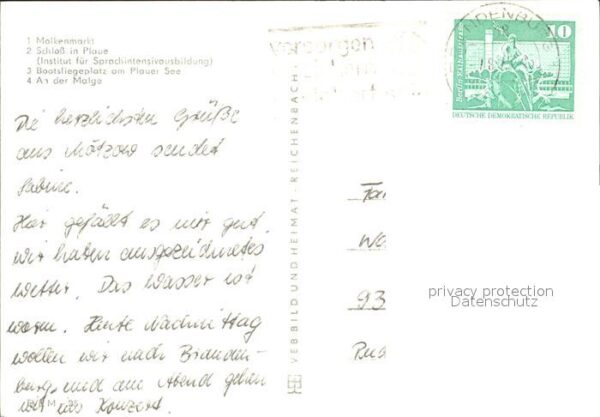 1 Molkenmarkt
2 Schloß in Plaue
(Institut für Sprachintensivausbildung)
3 Bootsliegeplatz am Plauer See
4 An der Malge
Die herzlichsten Grüße
aus Mötzow sendet
Sabine.
Hier gefällt es mir gut,
wir haben ausgezeichnetes
Wetter. Das Wasser ist
warm. Heute Nachmittag
wollen wir nach Branden-
burg, und am Abend gehen
wir ins Konzert.
VEB BILD UND HEIMAT · REICHENBACH
vorsorgen
10
DEUTSCHE DEMOKRATISCHE REPUBLIK
93
privacy protection
Datenschutz